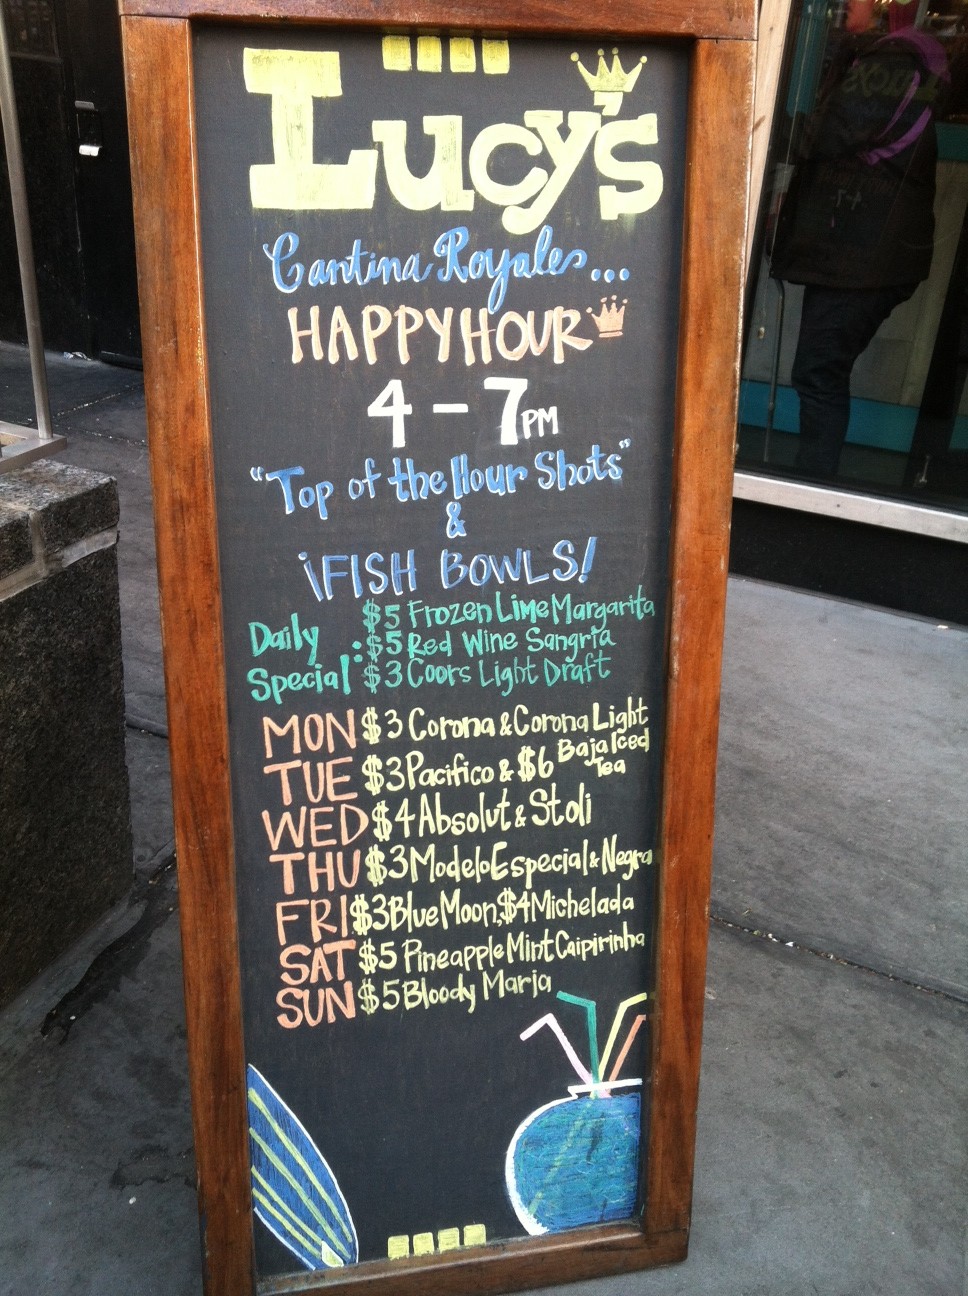 Lucy's
Cantina Royale...
HAPPY HOUR
4 - 7 PM
"Top of the Hour Shots"
&
¡FISH BOWLS!
Daily Special: $5 Frozen Lime Margarita
$5 Red Wine Sangria
$3 Coors Light Draft
MON $3 Corona & Corona Light
TUE $3 Pacifico & $6 Baja Iced Tea
WED $4 Absolut & Stoli
THU $3 Modelo Especial & Negra
FRI $3 Blue Moon, $4 Michelada
SAT $5 Pineapple Mint Caipirinha
SUN $5 Bloody Maria